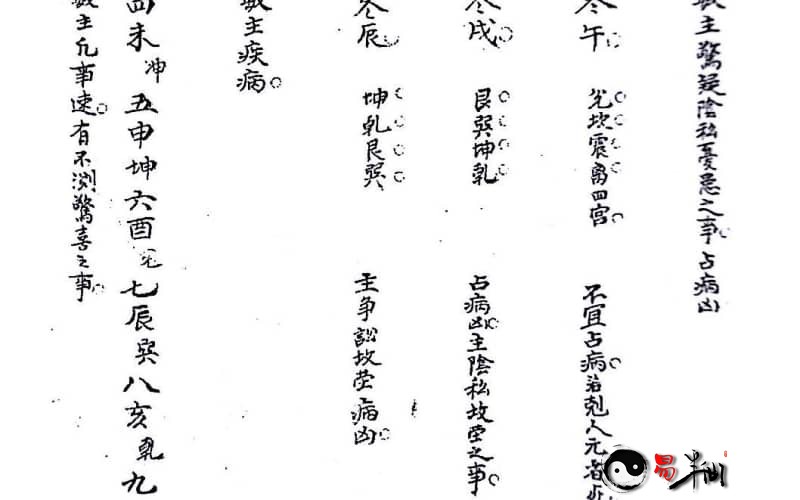 主驚疑陰私憂忌之事。占病凶
冬午。 兌坎震离四宮。 不宜占病。若剋人元者
冬戌。 艮巽坤乳 占病凶。主陰私坟茔之事。
冬辰。 坤乳艮巽 主争訟坟茔病凶。
主疾病。
未冲五申坤六酉兌七辰巽八亥乳九
主凡事速。有不測驚喜之事。
易半仙